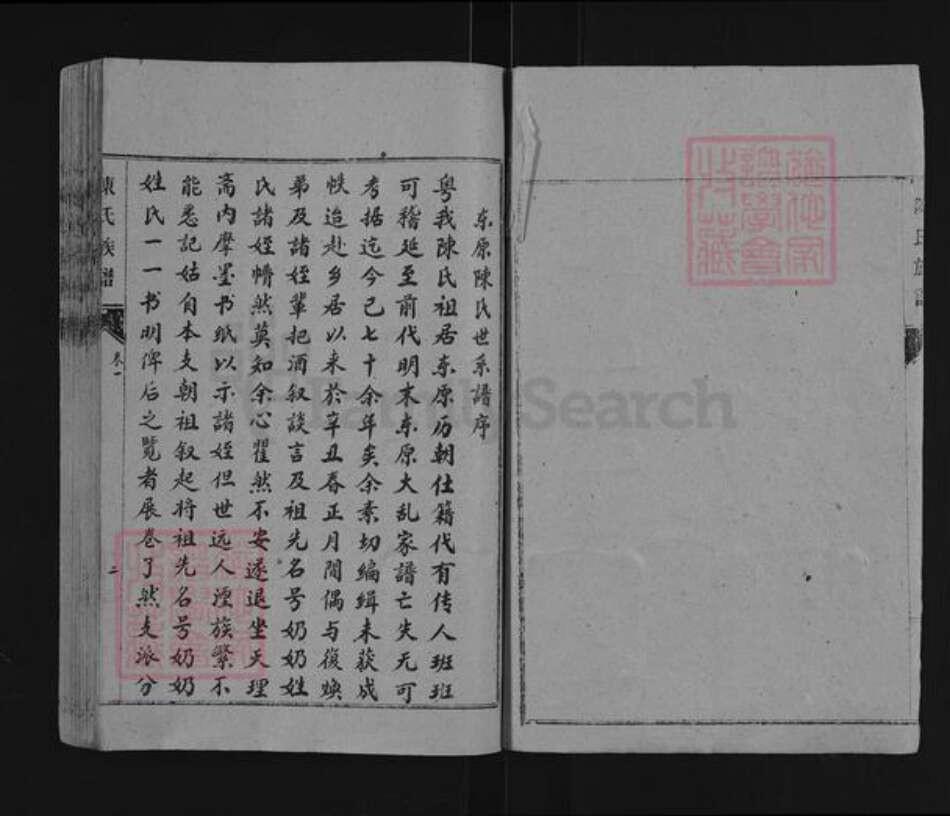 东原陳氏世系譜序
粤我陳氏祖居东原历朝仕籍代有传人班班
可稽延至前代明末东原大乱家譜亡失无可
考据迄今已七十余年矣余素切编缉未获成
帙迨赴乡居以来於辛丑春正月間偶与復焕
弟及諸姪輩把酒叙談言及祖先名号奶奶姓
氏諸姪懵然莫知余心瞿然不安遂退坐天理
高内摩墨书纸以示諸姪但世远人湮族繁不
能悉記姑自本支朝祖叙起将祖先名号奶奶
姓氏一一书明俾后之覽者展卷了然支派分
陳氏族譜
卷一
二
陳氏族譜
FamilySearch